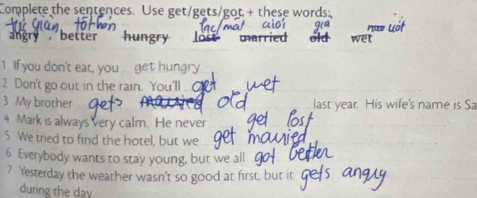 Complete the sentences. Use get/gets/got + these words:
tức giận tốt hơn lạc/mất cưới già ướt
angry better hungry lost married old wet
1 If you don't eat, you get hungry
2 Don't go out in the rain. You'll get wet
3 My brother gets married old last year. His wife's name is Sa
4 Mark is always very calm. He never get lost
5 We tried to find the hotel, but we get mauried
6 Everybody wants to stay young, but we all got better
7 Yesterday the weather wasn't so good at first, but it gets angry
during the day.